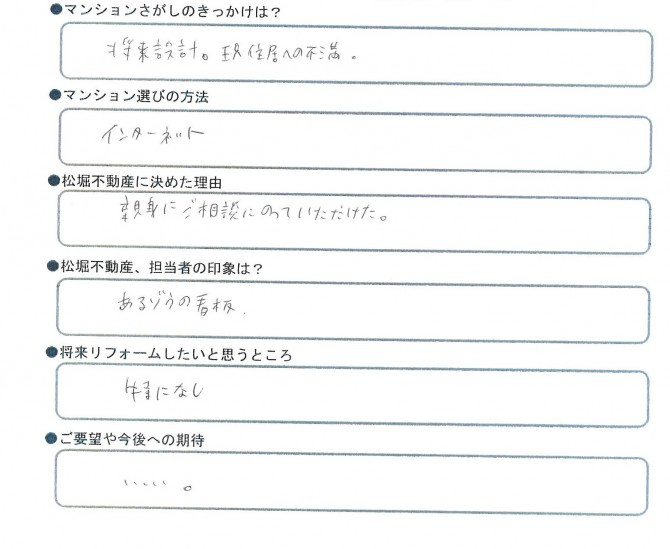 ●マンションさがしのきっかけは？
将来設計。現住居への不満。
●マンション選びの方法
インターネット
●松堀不動産に決めた理由
親身にご相談にのっていただけた。
●松堀不動産、担当者の印象は？
あるぞうの看板.
●将来リフォームしたいと思うところ
特になし
●ご要望や今後への期待